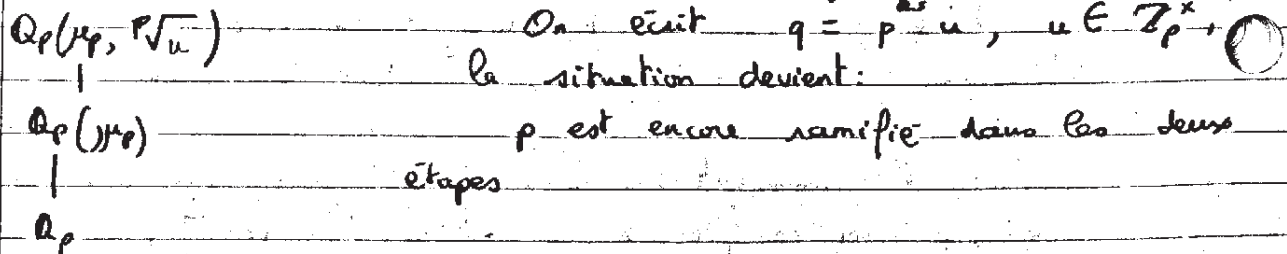 Q_p(μ_p, ᵖ√u) On écrit q = p u, u ∈ Z_p^×,
| la situation devient:
Q_p(μ_p) p est encore ramifié dans les deux
| étapes
Q_p